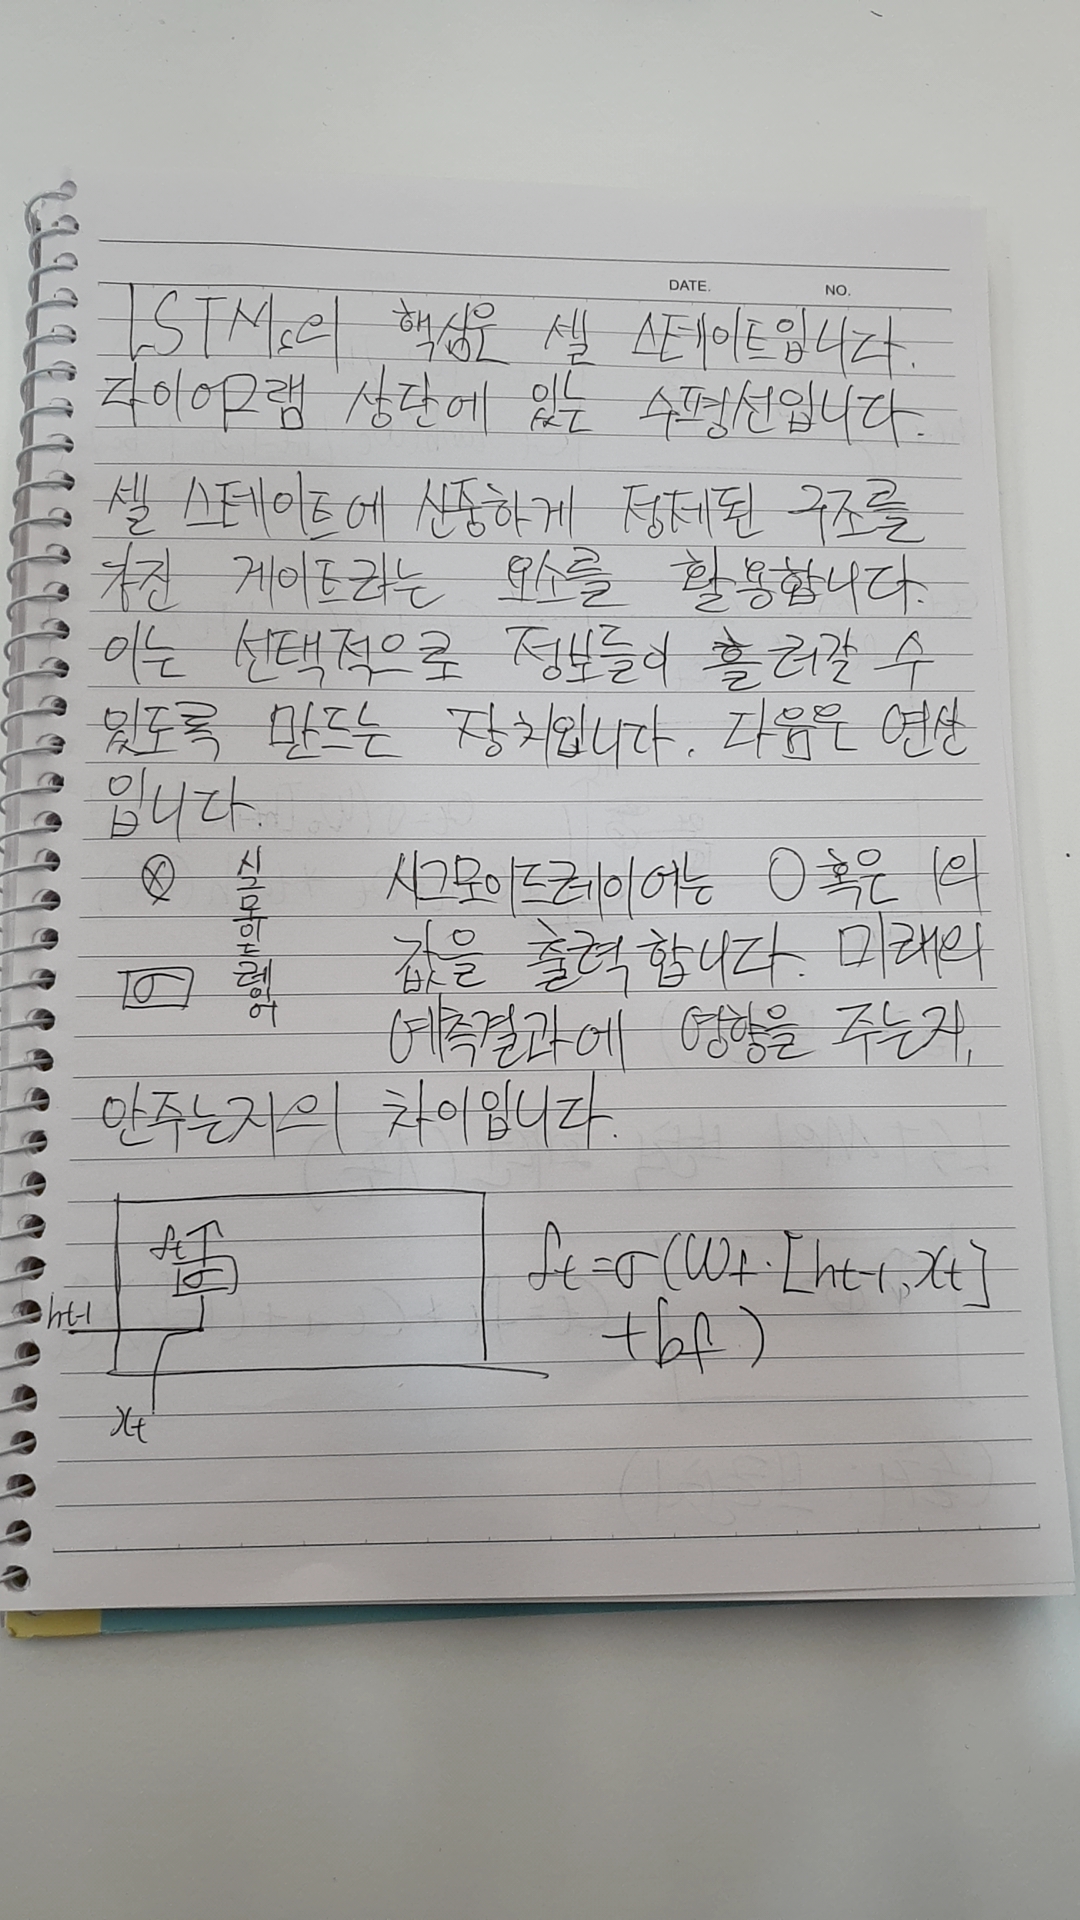 DATE. NO.
LSTMs의 핵심은 셀 스테이트입니다.
다이어그램 상단에 있는 수평선입니다.
셀 스테이트에 신중하게 정제된 구조를
가진 게이트라는 요소를 활용합니다.
이는 선택적으로 정보들이 흘러갈 수
있도록 만드는 장치입니다. 다음은 연산
입니다.
⊗ 시그모이드레이어는 0 혹은 1의
값을 출력합니다. 미래의
σ
예측결과에 영향을 주는지,
안주는지의 차이입니다.
ft
σ
ht-1
xt
ft = σ(Wf·[ht-1, xt]
+bf)